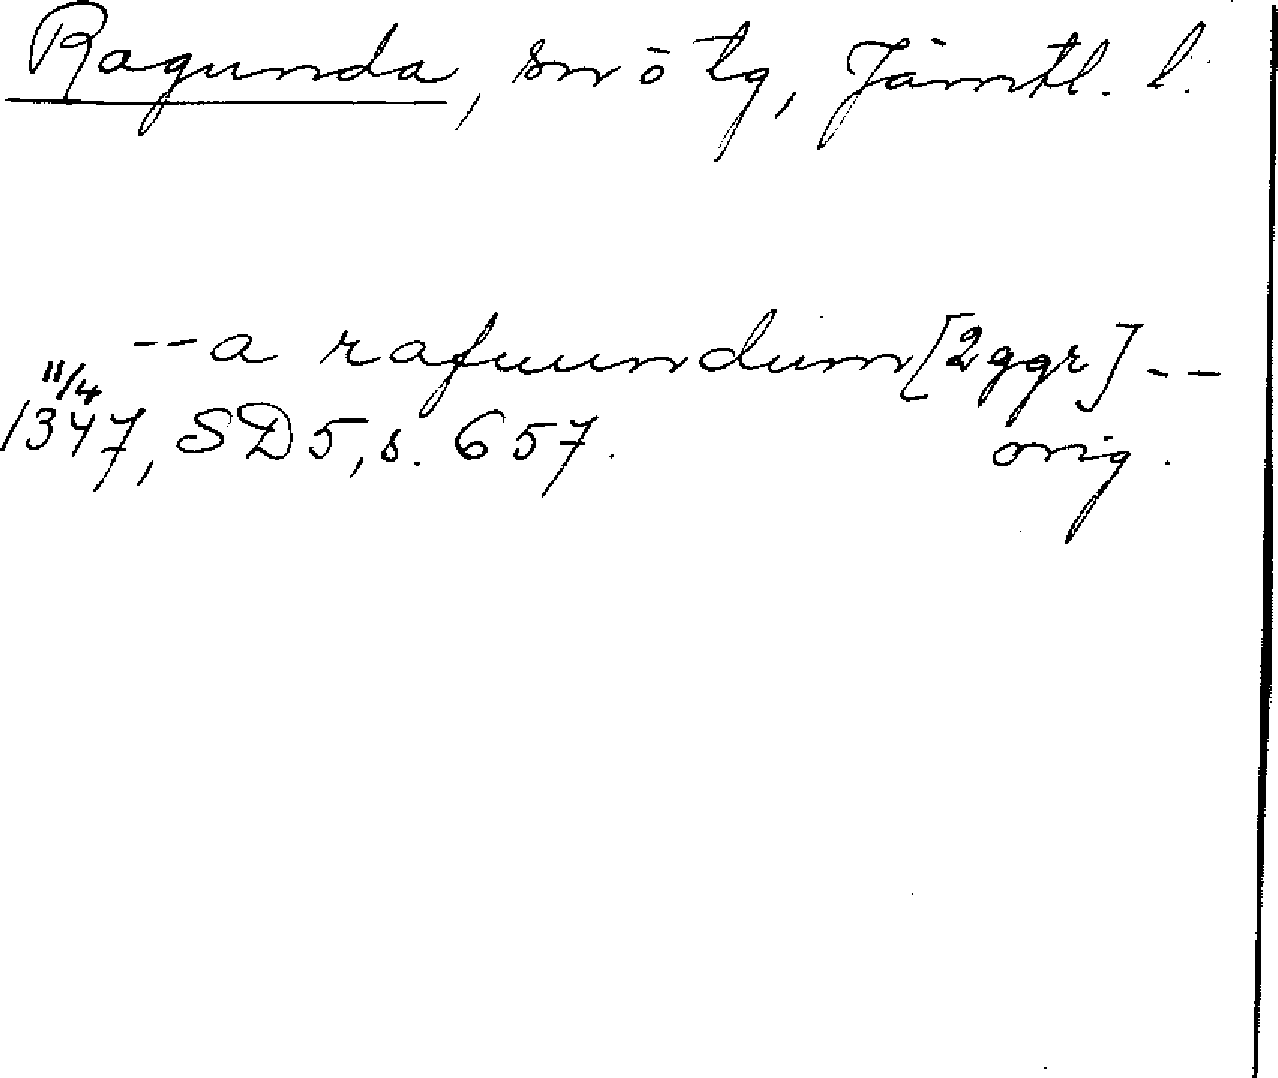 Ragunda, sn o tg, Jämtl. l.
--a rafuundum [2 ggr] --
11/4
1347, SD 5, s. 657. orig.